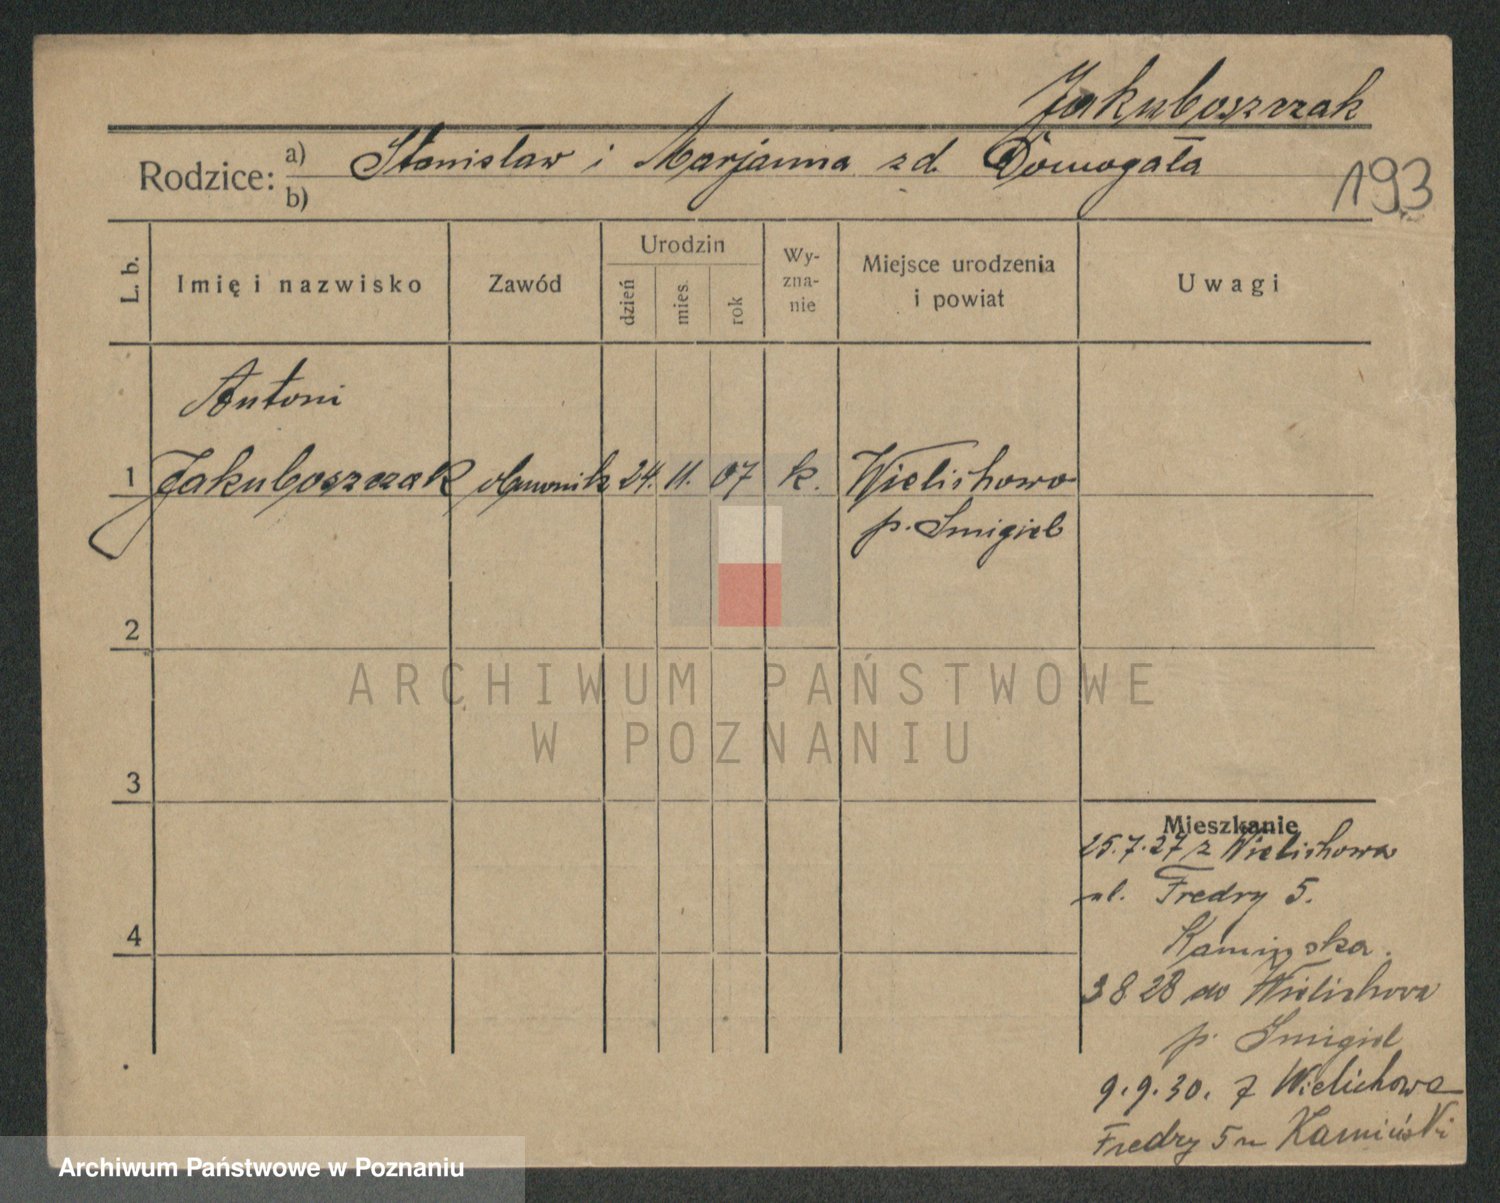 Jakuboszczak
Rodzice: a) b) Stanisław i Marjanna zd. Domogała
193
L. b.
Imię i nazwisko
Zawód
Urodzin
dzień
mies.
rok
Wy-
zna-
nie
Miejsce urodzenia
i powiat
Uwagi
Antoni
1 Jakuboszczak 24. 11. 07 k. Wielichowo
p. Śmigiel
2
3
4
Mieszkanie
25.7.27 z Wielichowa
ul. Fredry 5.
Kamińska.
3 8 28 do Wielichowa
p. Śmigiel
9.9.30. z Wielichowa
Fredry 5 Kamiński
ARCHIWUM PAŃSTWOWE
W POZNANIU
Archiwum Państwowe w Poznaniu